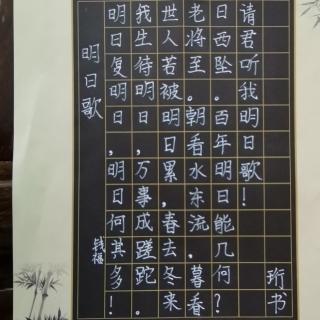 明日歌
钱福
明日复明日，明日何其多！
我生待明日，万事成蹉跎。
世人若被明日累，春去冬来
老将至。朝看水东流，暮看
日西坠。百年明日能几何？
请君听我明日歌！
珩书